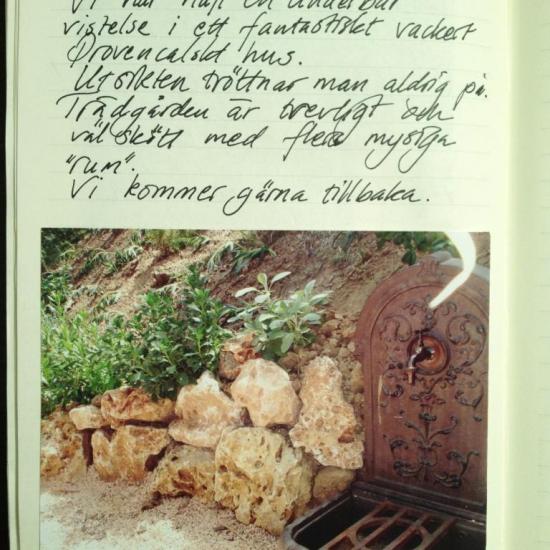 Vi har haft en underbar
vistelse i ett fantastiskt vackert
Provencalskt hus.
Utsikten tröttnar man aldrig på.
Trädgården är trevligt och
väl skött med flera mysiga
"rum".
Vi kommer gärna tillbaka.